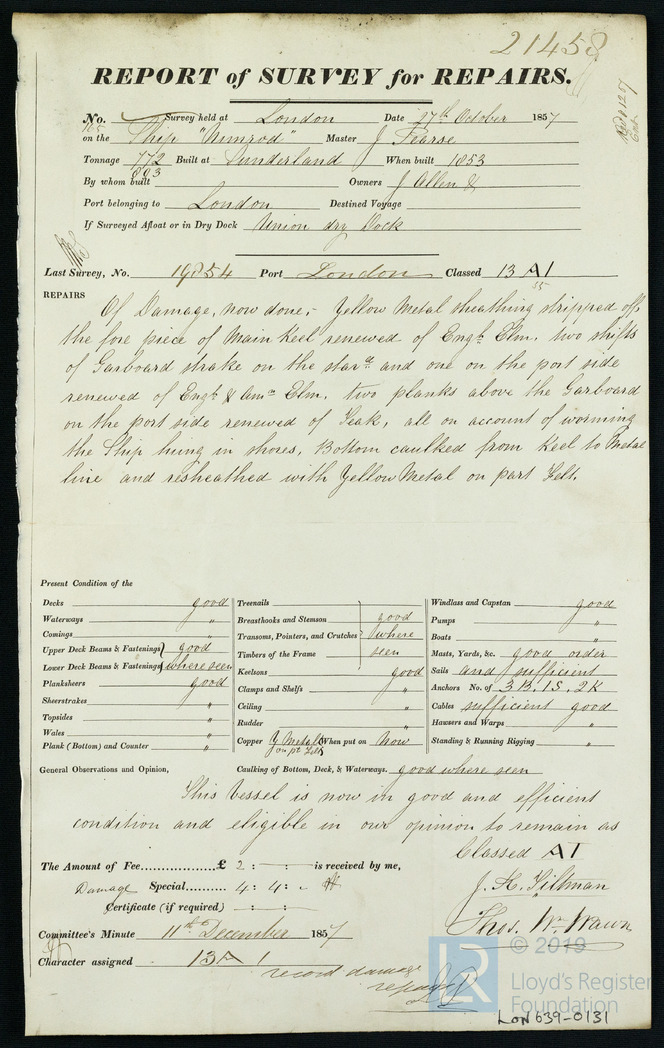 21458
REPORT of SURVEY for REPAIRS.
No. Survey held at London Date 27th October 1857
on the Ship "Nimrod" Master J Pearse
Tonnage 772 Built at Sunderland When built 1853
803
By whom built Owners J Allen &
Port belonging to London Destined Voyage
If Surveyed Afloat or in Dry Dock Union dry Dock
Last Survey, No. 19854 Port London Classed 13 A1
55
REPAIRS Of Damage, now done,- Yellow Metal sheathing stripped off,
the fore piece of Main Keel renewed of Engh. Elm, two shifts
of Garboard strake on the stard and one on the port side
renewed of Engh. & Amn Elm, two planks above the Garboard
on the port side renewed of Teak, all on account of worming
the Ship being in shores, Bottom caulked from Keel to Metal
line and resheathed with Yellow Metal on part Felt.
Present Condition of the
Decks good
Waterways "
Comings "
Upper Deck Beams & Fastenings good
Lower Deck Beams & Fastenings where seen
Planksheers good
Sheerstrakes "
Topsides "
Wales "
Plank (Bottom) and Counter "
Treenails
Breasthooks and Stemson good
Transoms, Pointers, and Crutches where
Timbers of the Frame seen
Keelsons good
Clamps and Shelfs "
Ceiling "
Rudder "
Copper Y Metal When put on Now
on pt Felt
Windlass and Capstan good
Pumps "
Boats "
Masts, Yards, &c. good order
Sails and sufficient
Anchors No. of 3 B, 1 S, 2 K
Cables sufficient good
Hawsers and Warps "
Standing & Running Rigging "
General Observations and Opinion, Caulking of Bottom, Deck, & Waterways. good where seen
This Vessel is now in good and efficient
condition and eligible in our opinion to remain as
Classed A1
The Amount of Fee £ 2 : - : - is received by me,
Damage Special 4 : 4 : -
Certificate (if required) - : - :
J. H. Tillman
Thos. Wm. Wawn
Committee's Minute 11th December 1857
Character assigned 13 A 1
record damage
repairs
© 2019
LR
Lloyd's Register
Foundation
LON 639-0131